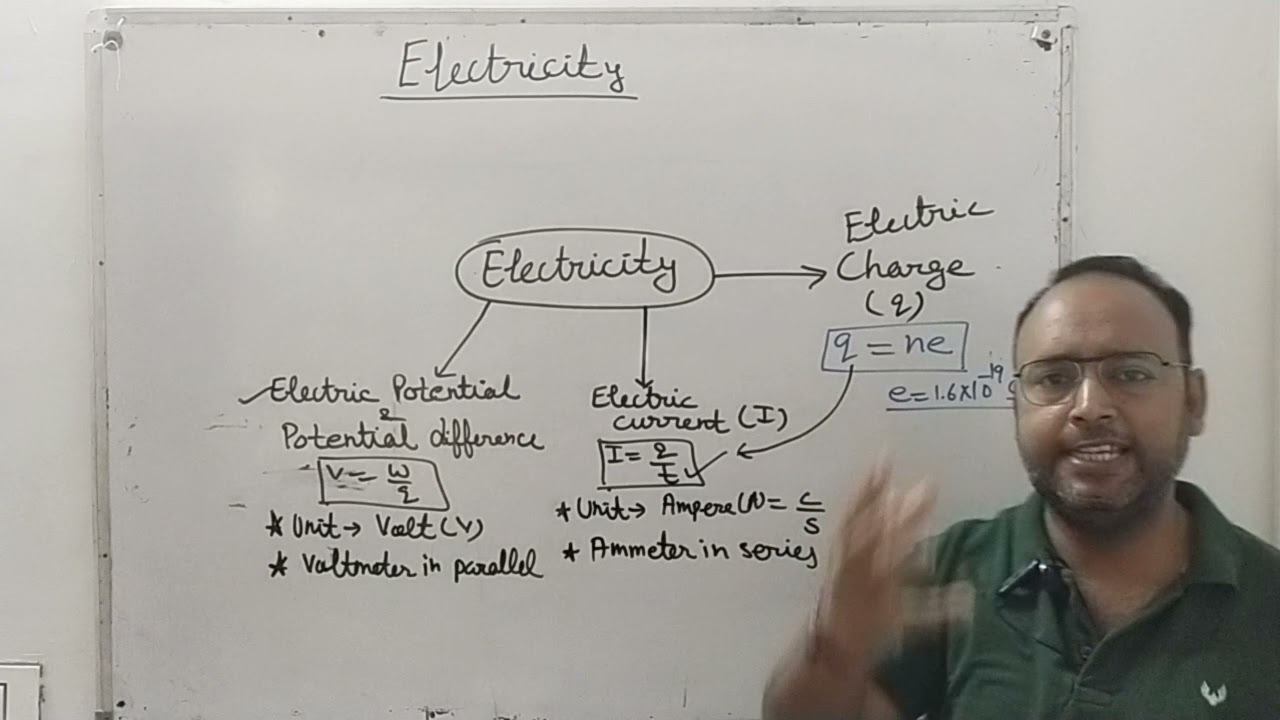 Electricity
Electricity
Electric
Charge
(q)
q = ne
e = 1.6×10⁻¹⁹ C
Electric Potential
&
Potential difference
V = W/q
* Unit → Volt (V)
* Voltmeter in parallel
Electric
current (I)
I = q/t
* Unit → Ampere (A) = C/S
* Ammeter in series